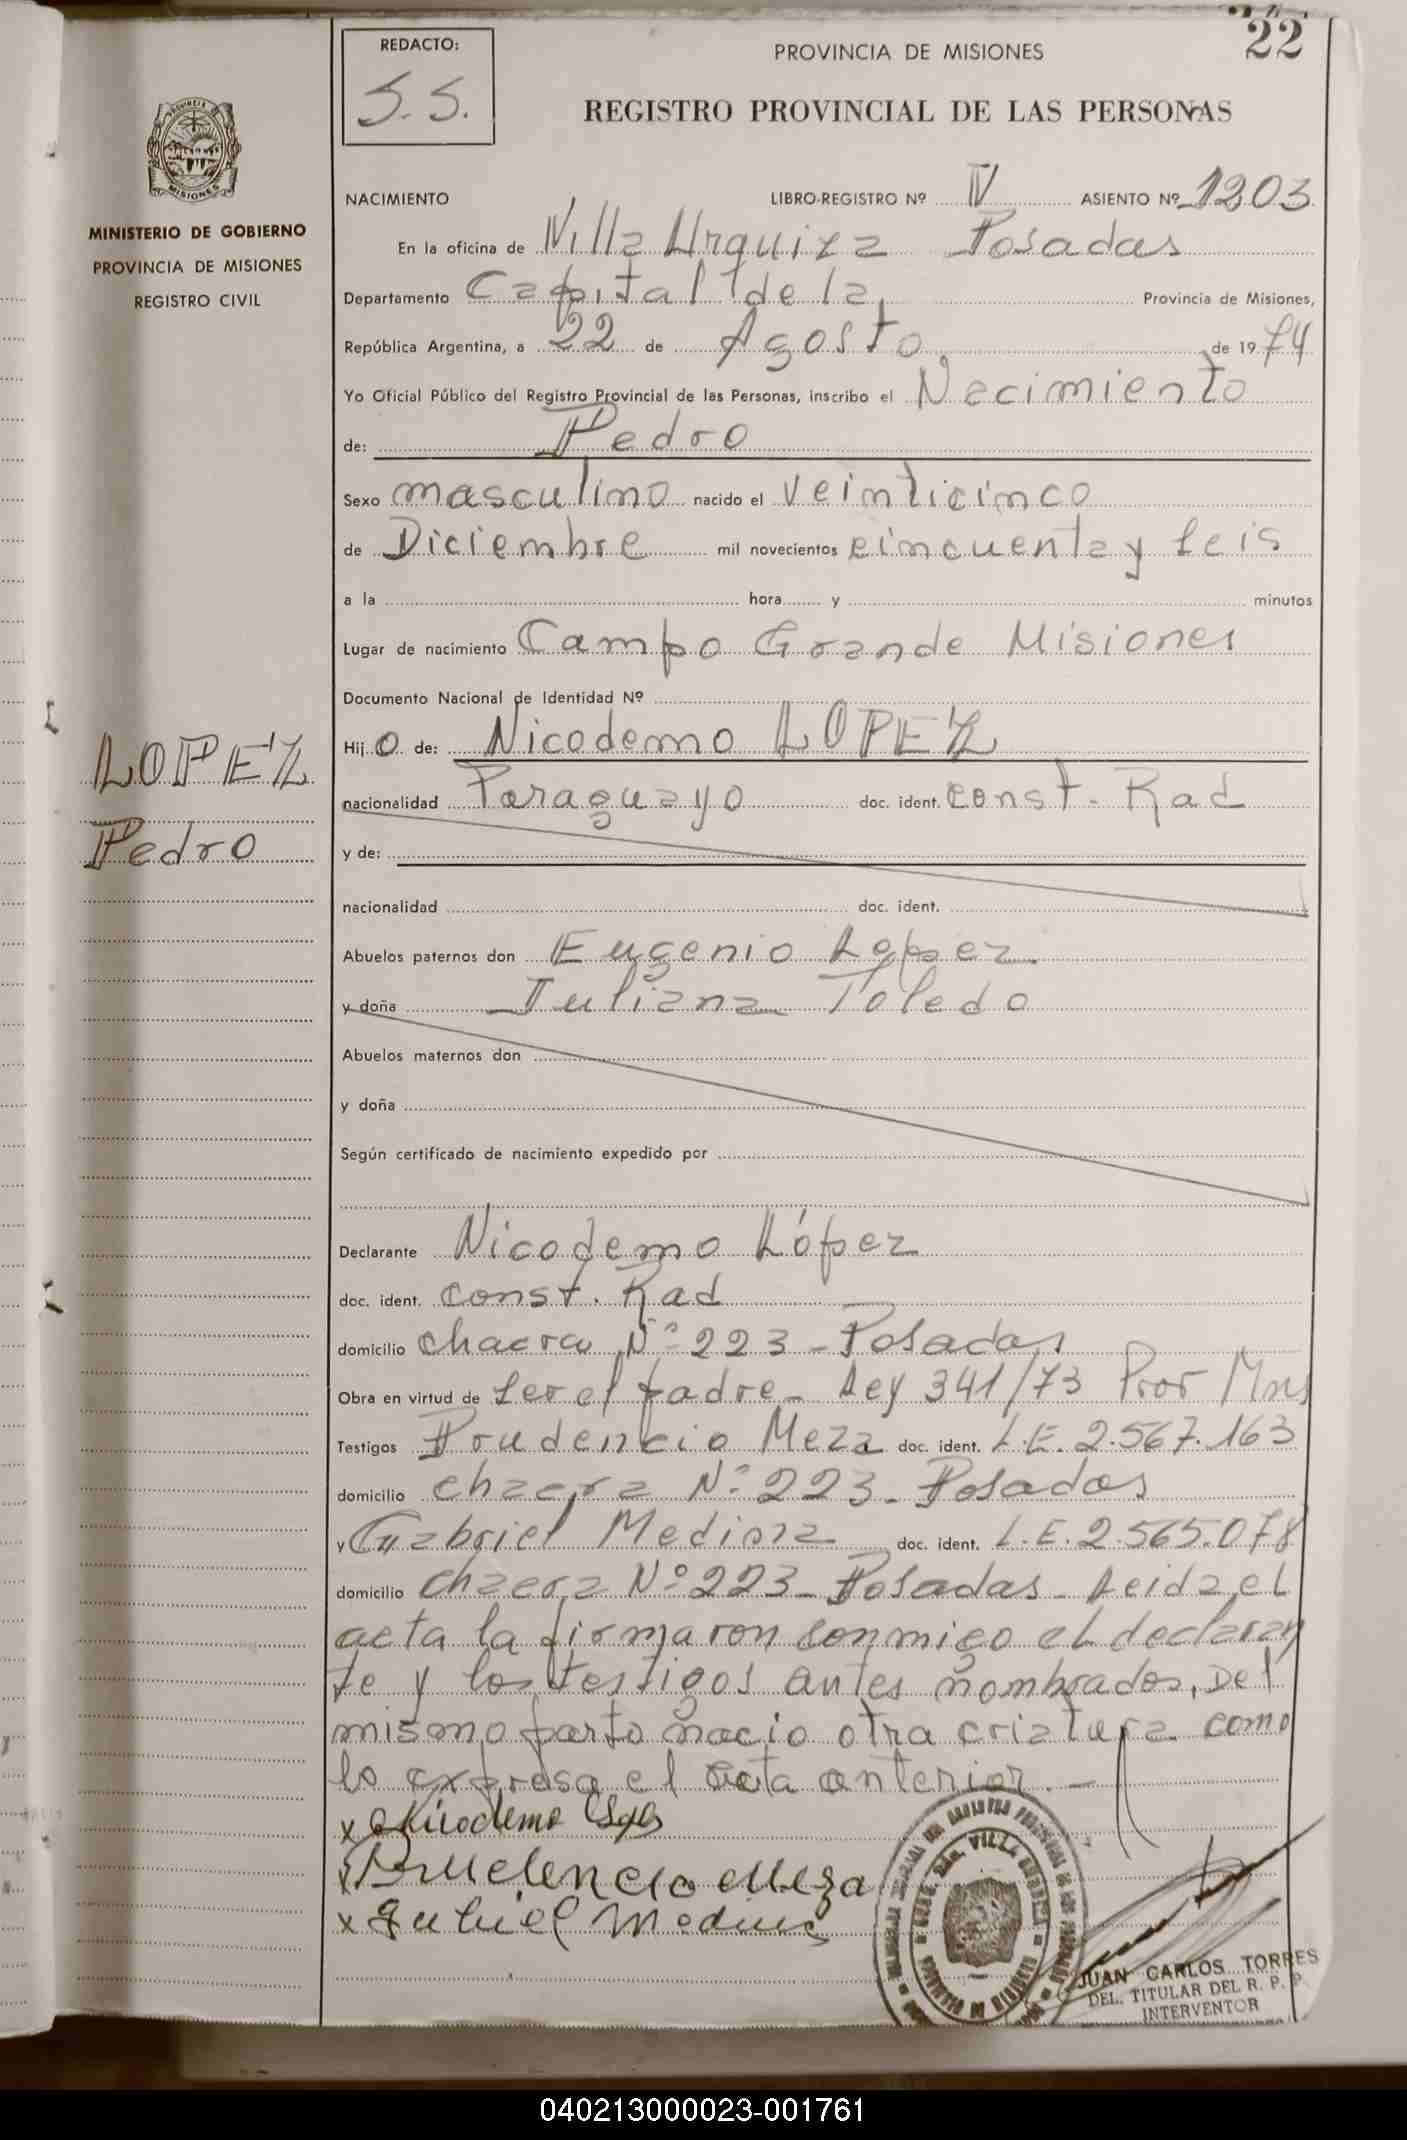 22
REDACTO:
S.S.
PROVINCIA DE MISIONES
REGISTRO PROVINCIAL DE LAS PERSONAS
MISIONES
MINISTERIO DE GOBIERNO
PROVINCIA DE MISIONES
REGISTRO CIVIL
NACIMIENTO LIBRO-REGISTRO Nº IV ASIENTO Nº 1203
En la oficina de Villa Urquiza Posadas
Departamento Capital de la Provincia de Misiones,
República Argentina, a 22 de Agosto de 1974
Yo Oficial Público del Registro Provincial de las Personas, inscribo el Nacimiento
de: Pedro
Sexo masculino nacido el veinticinco
de Diciembre mil novecientos cincuenta y seis
a la hora y minutos
Lugar de nacimiento Campo Grande Misiones
Documento Nacional de Identidad Nº
Hij o de: Nicodemo LOPEZ
LOPEZ
Pedro
nacionalidad Paraguayo doc. ident. const. Rad
y de:
nacionalidad doc. ident.
Abuelos paternos don Eugenio Lopez
y doña Juliana Toledo
Abuelos maternos don
y doña
Según certificado de nacimiento expedido por
Declarante Nicodemo López
doc. ident. const. Rad
domicilio chacra Nº 223 - Posadas
Obra en virtud de ser el padre - Ley 341/73 Pror Mns
Testigos Prudencio Meza doc. ident. L.E. 2.567.163
domicilio chacra Nº 223 - Posadas
y Gabriel Medina doc. ident. L.E. 2.565.078
domicilio chacra Nº 223 - Posadas - Leida el
acta la firmaron conmigo el declaran
te y los testigos antes nombrados. Del
mismo parto nacio otra criatura como
lo expresa el acta anterior. -
x Nicodemo
x Prudencio Meza
x Gabriel Medina
VILLA URQUIZA
JUAN CARLOS TORRES
DEL. TITULAR DEL R. P. P.
INTERVENTOR
040213000023-001761